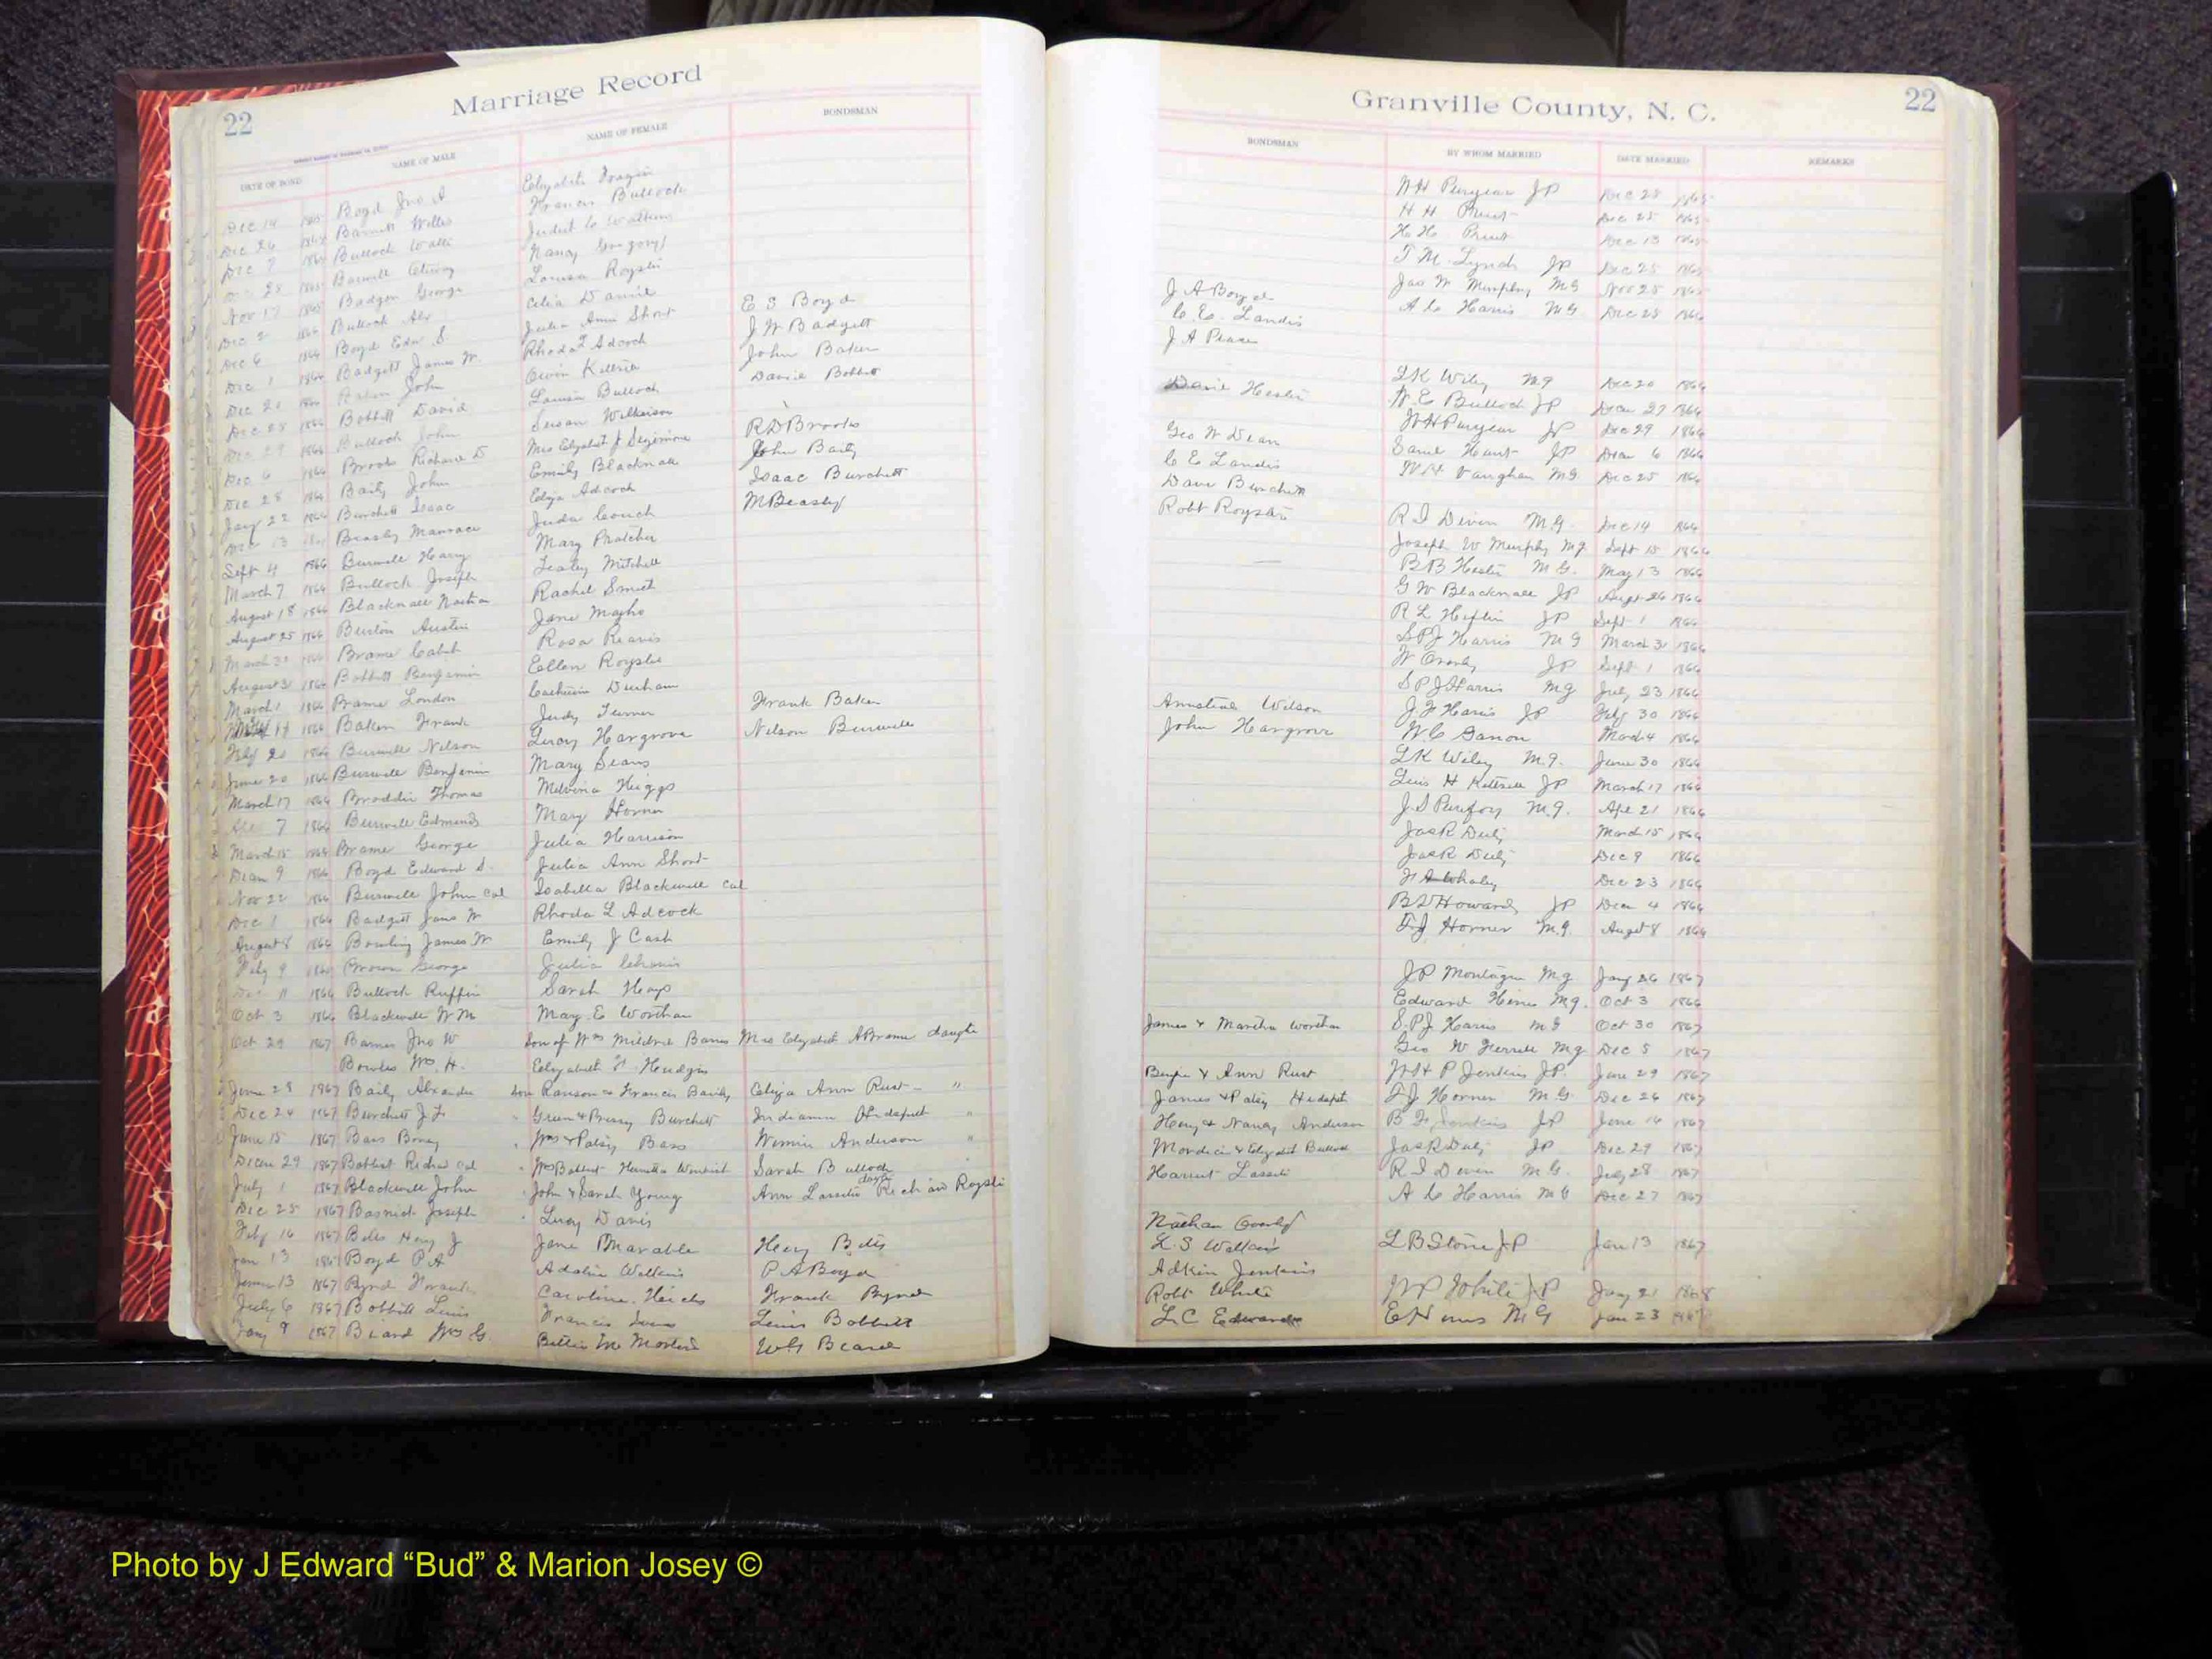 22
Marriage Record
DATE OF BOND NAME OF MALE NAME OF FEMALE BONDSMAN
Dec 14 1865 Boyd Jno A Elizabeth Frazier
Dec 26 Barnett Willis Francis Bullock
Dec 7 Bullock Judith C Watkins
Dec 25 1865 Burwell Nancy Gregory
Nov 17 1865 Badger George Louisa Royster
Dec 2 1866 Bullock Alex Celia Daniel
Dec 6 1866 Boyd Edw S. Julia Ann Short E S Boyd
Dec 1 1866 Badgett James W. Rhoda L Adcock J W Badgett
Dec 21 1866 John Kittrell John Baker
Dec 28 1866 Bobbitt David Louisa Bullock David Bobbitt
Dec 29 1866 Bullock John Susan Wilkerson
Dec 6 1866 Brooks Richard D Mrs Elizabeth J R D Brooks
Dec 28 1866 Baily John Emily Blacknall John Baily
Jany 22 1866 Burchett Isaac Eliza Adcock Isaac Burchett
Dec 13 Beasly Juda Couch M Beasly
Sept 4 1866 Burwell Harry Mary Thatcher
March 7 1866 Bullock Joseph Mitchell
August 18 1866 Blacknall Nathan Rachel Smith
August 25 1866 Burton Austin Jane Mayho
March 1866 Brame Caleb Rosa Reavis
August 31 1866 Bobbitt Benjamin Ellen Royster
March 1 1866 Brame London Durham
1866 Baker Frank Judy Turner Frank Baker
Feby 20 1866 Burwell Nelson Hargrove Nelson Burwell
June 20 1866 Burwell Benjamin Mary Sears
March 17 1866 Broddie Thomas Melvina Higgs
7 1866 Burwell Edmund Mary Horner
March 15 1866 Brame George Julia Harrison
Decm 9 1866 Boyd Edward S. Julia Ann Short
Nov 22 1866 Burwell John Col Isabella Blackwell Col
Dec 1 1866 Badgett James W Rhoda L Adcock
August 8 1866 Bowling James W Emily J Cash
Feby 9 Brown George Julia
Dec 11 1866 Bullock Ruffin Sarah Hays
Oct 3 1866 Blackwell W M Mary E Worthan
Oct 29 1867 Barnes Jno W Son of Wm Mildred Barnes Mrs Elizabeth A Brame daughter
Bowles Wm H. Elizabeth F. Hudgins
June 28 1867 Baily Alexander Son Ransom & Francis Baily Eliza Ann Rust "
Dec 24 1867 Burchett J. F. " Green & Burchett Indiana Hedspeth "
June 15 1867 Bass " Wm & Patsy Bass Winnie Anderson "
Decm 29 1867 Bobbitt Richard Col " Wm Bobbitt Sarah Bullock "
July 1 1867 Blackwell John " John & Sarah Young Ann Lassiter daughter Richard Royster
Dec 25 1867 Joseph " Lucy Davis
Feby 16 1867 Betts Henry J Jane Marable Henry Betts
Jan 13 1867 Boyd P A Adaline Watkins P A Boyd
13 1867 Bynd Frank Caroline Hicks Frank Bynd
July 6 1867 Bobbitt Lewis Francis Lewis Bobbitt
Jany 9 1867 Beard Wm G. Bettie W G Beard
Photo by J Edward “Bud” & Marion Josey ©
Granville County, N. C.
22
BONDSMAN BY WHOM MARRIED DATE MARRIED REMARKS
W H Puryear JP Dec 28 1865
H H Prout Dec 25 1865
H H Prout Dec 13 1865
T. M. Lynch JP Dec 25 1865
J A Boyd Jas W Murphy MG Nov 25 1865
C. E. Landis A C Harris MG. Dec 28 1866
J A Pearce
David Hester L K Wiley MG Dec 20 1866
W. E Bullock JP Decm 27 1866
Geo W Dean W H Puryear JP Dec 29 1866
C E Landis Saml Hunt JP Decm 6 1866
Dave Burchett W H Vaughan MG. Dec 25 1866
Robt Royster
R I Devin MG. Dec 14 1866
Joseph W Murphy MG Sept 15 1866
B B Hester MG. May 13 1866
G W Blacknall JP Augst 26 1866
R L Heflin JP Sept 1 1866
S P J Harris MG March 31 1866
W Overby JP Sept 1 1866
S P J Harris MG July 23 1866
Wilson J F Harris JP Feby 30 1866
John Hargrove W C Gannon March 4 1866
L K Wiley M.G. June 30 1866
Lewis H Kittrell JP March 17 1866
J. S Purefoy M.G. Apl 21 1866
Jas R Duty March 15 1866
Jas R Duty Dec 9 1866
F A Whaley Dec 23 1866
B D Howard JP Decm 4 1866
T J Horner M.G. Augst 8 1866
J P Montague MG Jany 26 1867
Edward Hines MG. Oct 3 1866
James & Martha Worthan S. P. J Harris MG Oct 30 1867
Geo W Ferrell MG Dec 5 1867
Benj & Ann Rust W H P Jenkins JP. June 29 1867
James & Patsy Hedspeth T J Horner M.G. Dec 26 1867
Henry & Nancy Anderson B F Jenkins JP June 16 1867
Mordecai & Elizabeth Bullock Jas R Duty JP Dec 29 1867
Harriet Lassiter R I Devin M.G. July 28 1867
A C Harris MG Dec 27 1867
Nathan Overby
L. S Watkins L B Stone JP Jan 13 1867
Adkin Jenkins
Robt White W P White JP Jany 21 1868
L. C Edwards E Hines MG Jan 23